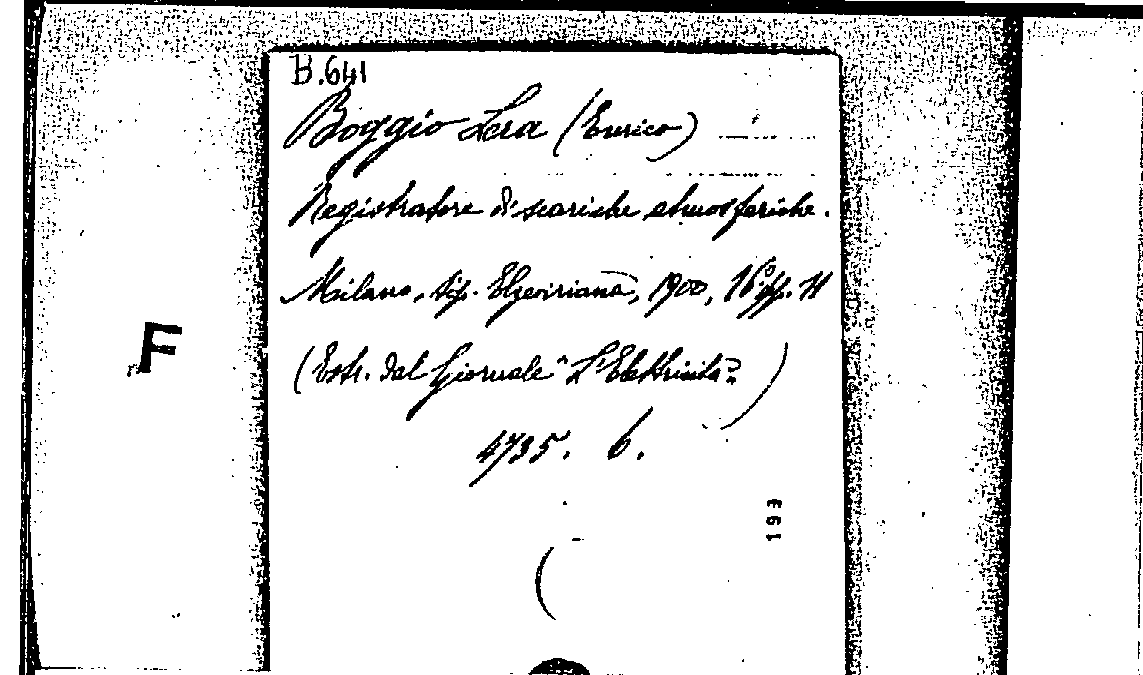 B.641
Boggio Lera (Enrico)
Registratore di scariche atmosferiche.
Milano, tip. Elzeviriana, 1900, 16° pp. 11
(Estr. dal Giornale "L'Elettricità")
4735. 6.
193
F